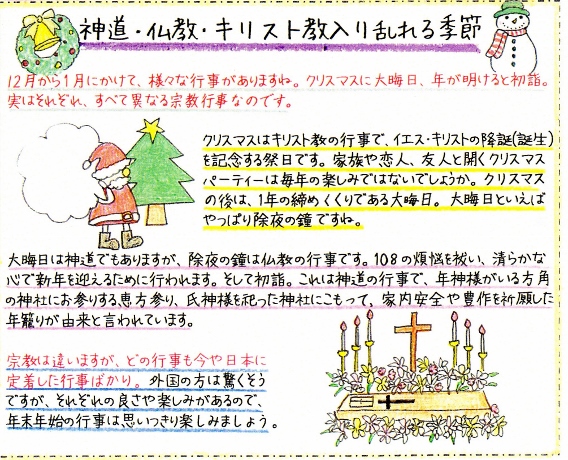 神道・仏教・キリスト教入り乱れる季節
12月から1月にかけて、様々な行事がありますね。クリスマスに大晦日、年が明けると初詣。
実はそれぞれ、すべて異なる宗教行事なのです。
クリスマスはキリスト教の行事で、イエス・キリストの降誕(誕生)
を記念する祭日です。家族や恋人、友人と開くクリスマス
パーティーは毎年の楽しみではないでしょうか。クリスマス
の後は、1年の締めくくりである大晦日。大晦日といえば
やっぱり除夜の鐘ですね。
大晦日は神道でもありますが、除夜の鐘は仏教の行事です。108の煩悩を祓い、清らかな
心で新年を迎えるために行われます。そして初詣。これは神道の行事で、年神様がいる方角
の神社にお参りする恵方参り、氏神様を祀った神社にこもって、家内安全や豊作を祈願した
年籠りが由来と言われています。
宗教は違いますが、どの行事も今や日本に
定着した行事ばかり。外国の方は驚くそう
ですが、それぞれの良さや楽しみがあるので、
年末年始の行事は思いっきり楽しみましょう。